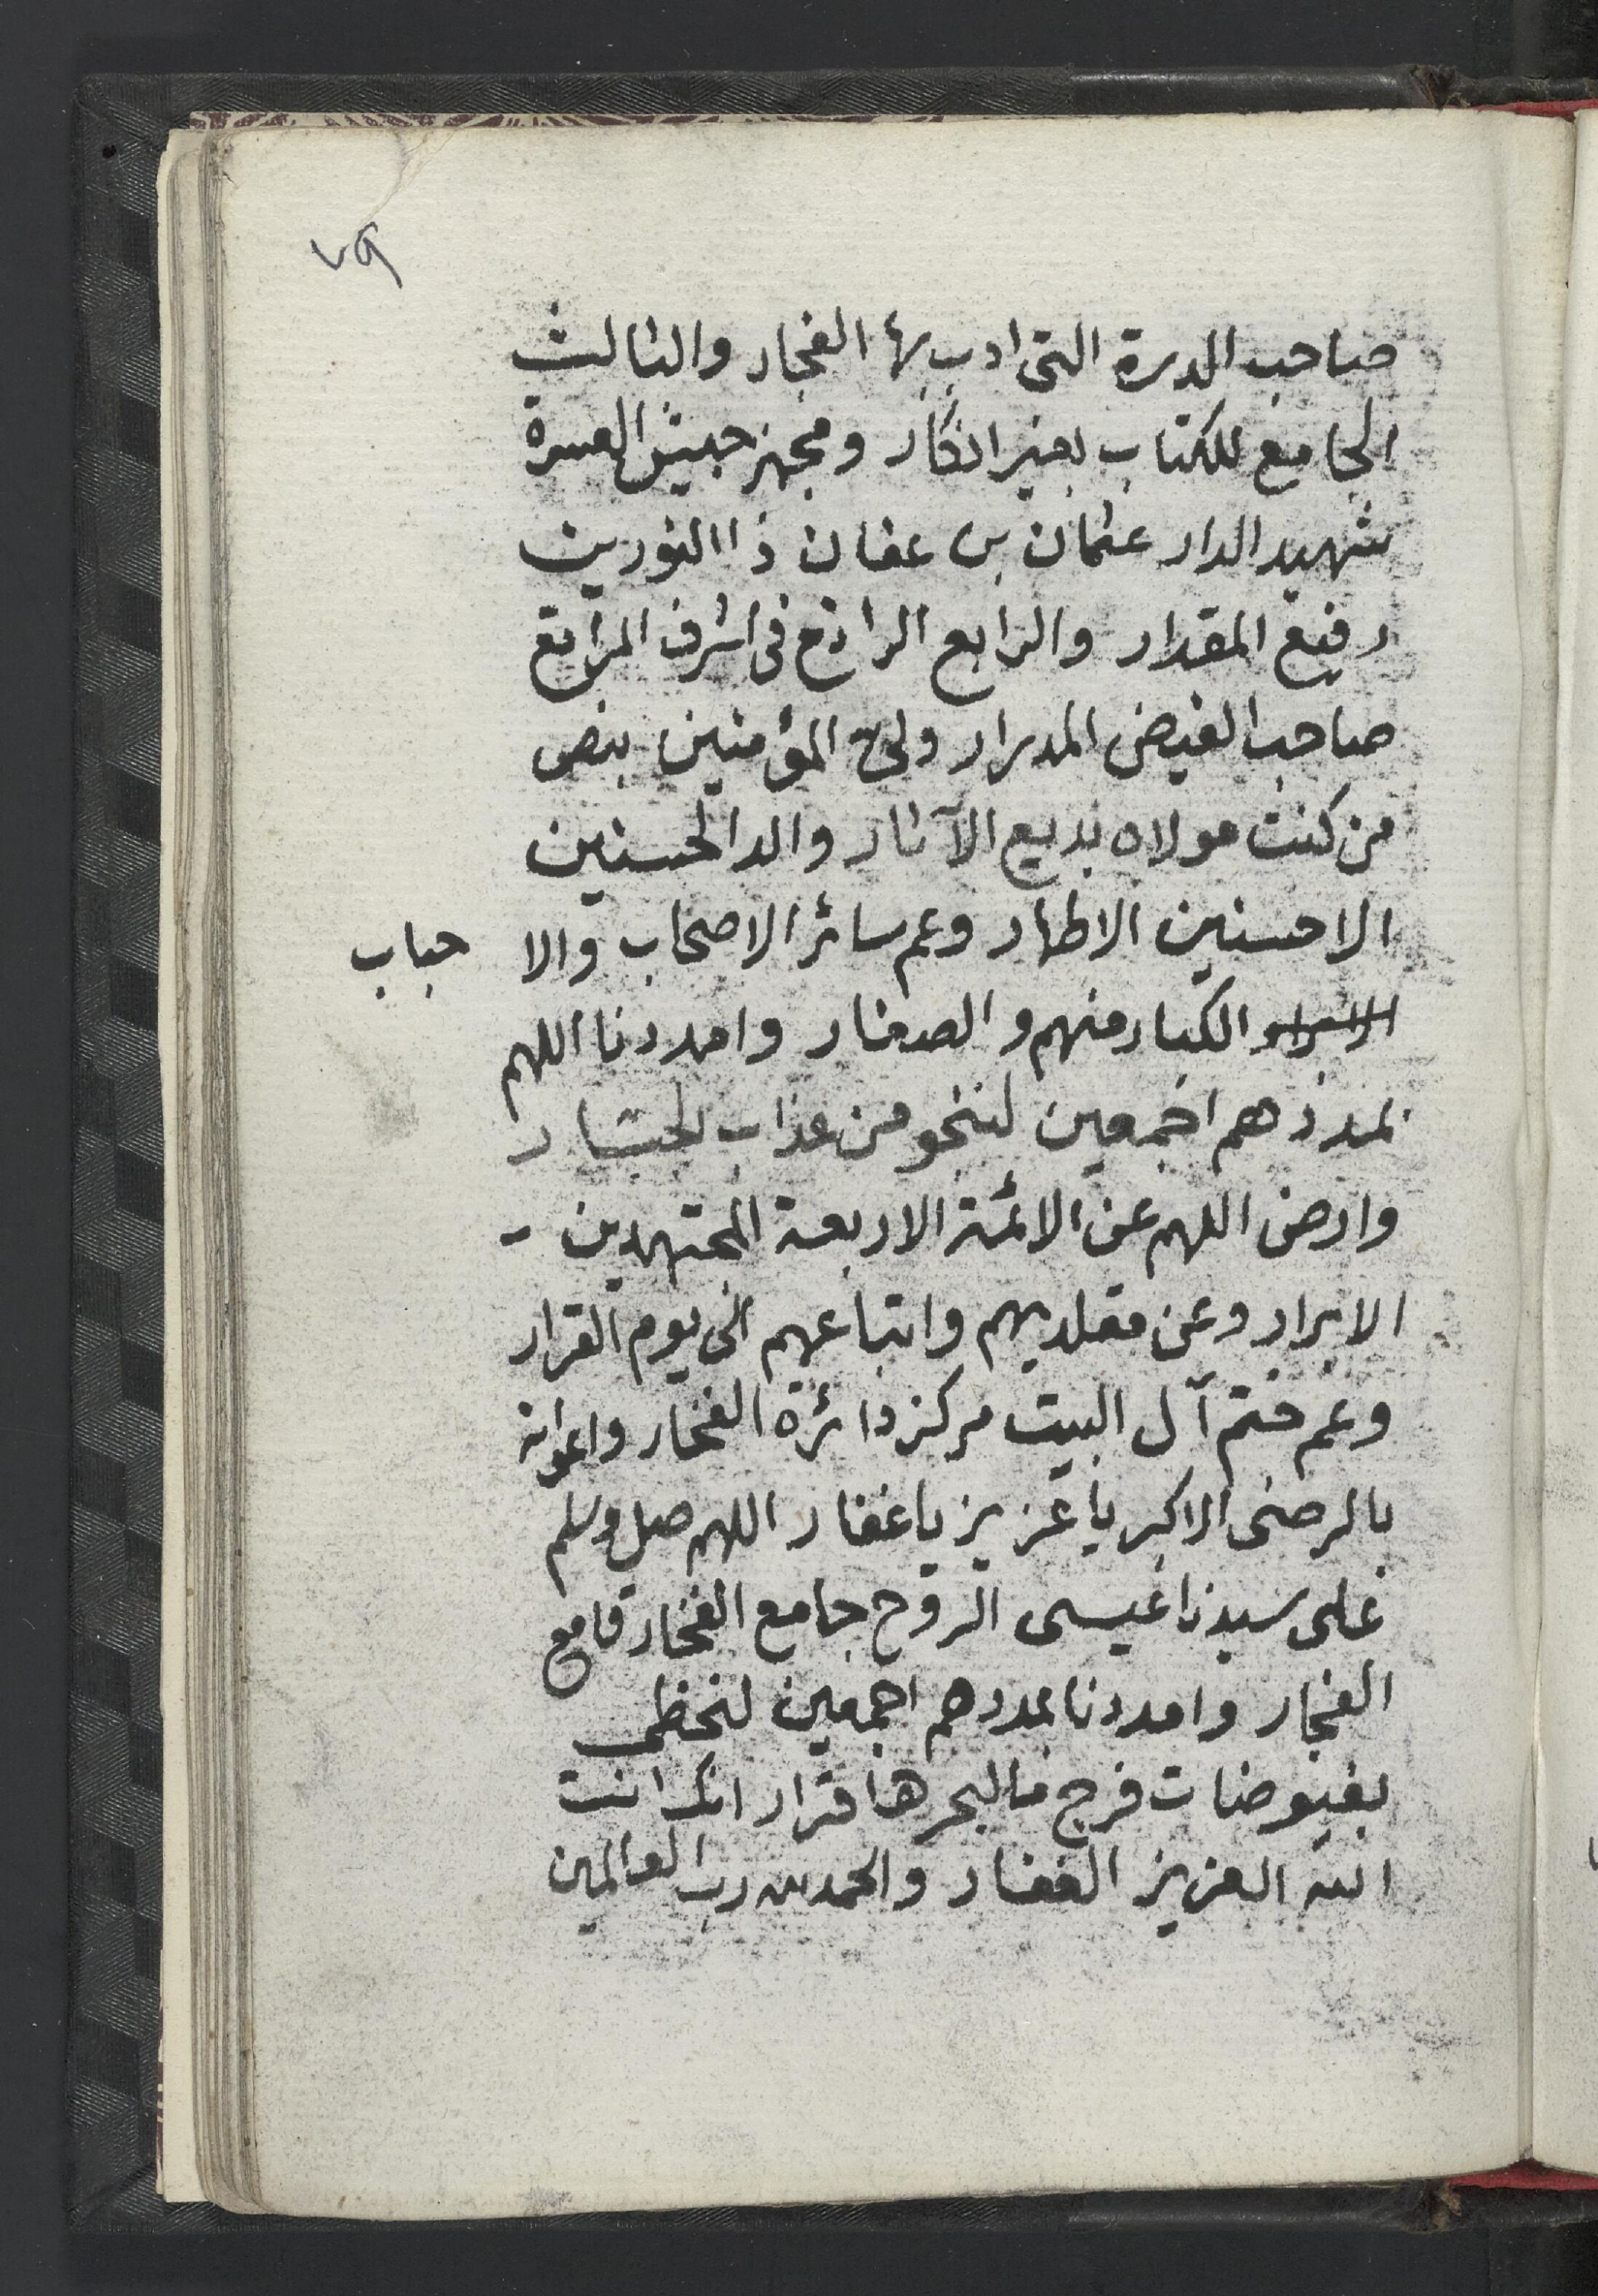 ٧٩
صاحب الدرة التى ادب بها الفجار والثالث
الجامع للكتاب بغير انكار ومجهز جيش العسرة
شهيد الدار عثمان بن عفان ذا النورين
رفيع المقدار والرابع الراتع فى اشرف المراتع
صاحب الفيض المدرار ولى المؤمنين بنص
من كنت مولاه بديع الآثار والد الحسنين
الاحسنين الاطهار وعم سائر الاصحاب والا حباب
الكبار منهم والصغار وامددنا اللهم
بمددهم اجمعين لننجو من عذاب
وارض اللهم عن الائمة الاربعة المجتهدين -
الابرار وعن مقلديهم واتباعهم الى يوم القرار
وعم ختم آل البيت مركز دائرة الفخار واعوانه
بالرضى الاكبر يا عزيز يا غفار اللهم صل وسلم
على سيدنا عيسى الروح جامع الفخار قامع
الفجار وامددنا بمددهم اجمعين لنحظى
بفيوضات فرج ما لبحرها قرار انك انت
الله العزيز الغفار والحمد لله رب العالمين